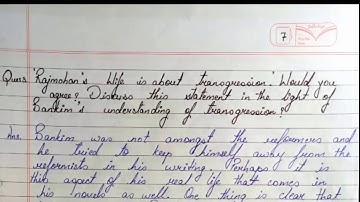 7
Ques. 'Rajmohan's Wife is about transgression'. Would you
agree? Discuss this statement in the light of
Bankim's understanding of transgression?
Ans. Bankim was not amongst the reformers and
he tried to keep himself away from the
reformists in his writing. Perhaps it is
this aspect of his real life that comes in
his novels as well. One thing is clear that